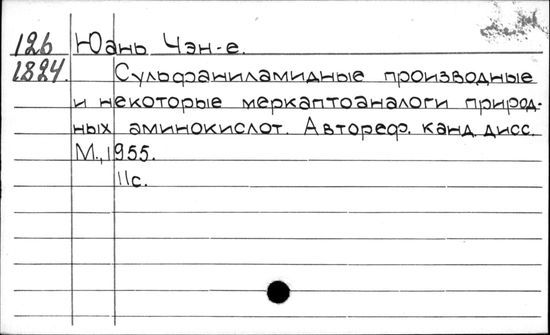 126 Юань Чэн-е.
1824. Сульфаниламидные производные
и некоторые меркаптоаналоги природ-
ных аминокислот. Автореф. канд. дисс.
М., 1955.
11с.